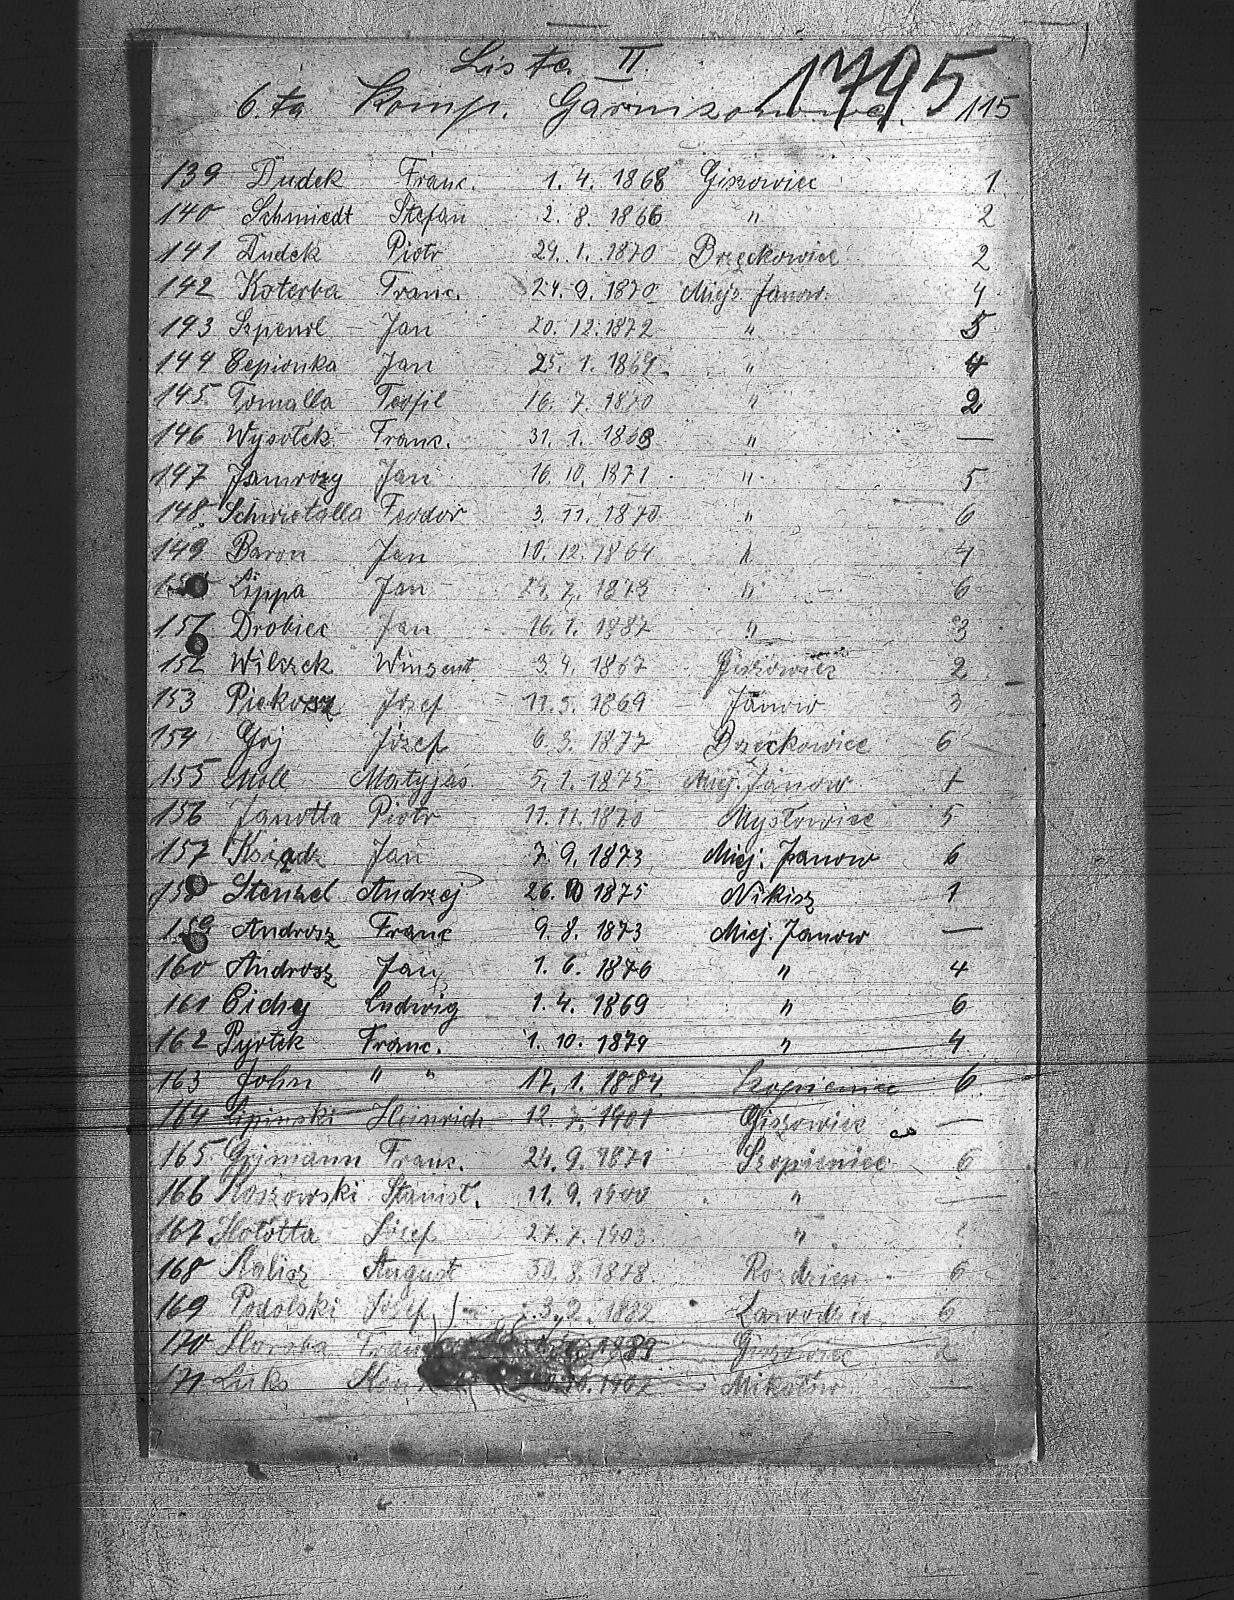 Lista II. 1795
6.ta Komp. Garnizonowa. 115
139 Dudek Franc. 1.4.1868 Giszowiec 1
140 Schmiedt Stefan 2.8.1866 " 2
141 Dudek Piotr 24.1.1870 Brzęckowice 2
142 Koterba Franc. 24.9.1870 Miejs. Janow. 4
143 Jan 20.12.1872 " 5
144 Cepionka Jan 25.1.1869 " 4
145 Tomalla Teofil 16.7.1870 " 2
146 Wysotek Franc. 31.1.1868 " —
147 Jamrozy Jan 16.10.1871 " 5
148 Schwietalla Teodor 3.11.1870 " 6
149 Baron Jan 10.12.1864 " 4
150 Lippa Jan 24.7.1873 " 6
151 Drobiec Jan 16.1.1887 " 3
152 Wilszek Winzent 3.4.1867 Giszowiec 2
153 Piekorz Józef 11.5.1869 Janow 3
154 Goj Józef 6.3.1877 Brzęckowice 6
155 Moll Matyjas 5.1.1875 Miej. Janow
156 Janotta Piotr 11.11.1870 Mysłowice 5
157 Ksiądz Jan 7.9.1873 Miej. Janow 6
158 Stenzel Andrzej 26. 1875 Nikisz 1
159 Androsz Franc 9.8.1873 Miej. Janow —
160 Androsz Jan 1.6.1876 " 4
161 Cichy Ludwig 1.4.1869 " 6
162 Pyrtek Franc. 1.10.1879 " 4
163 John " " 17.1.1884 Szopienice 6
164 Lipinski Heinrich 12.7.1901 Giszowiec —
165 Grimann Franc. 24.9.1871 Szopienice 6
166 Koszowski Stanisł. 11.9.1900 " —
167 Józef 27.7.1903 "
168 Kalisz August 30.8.1878 Rozdzien 6
169 Podolski Józef 3.2.1882 Zawodzie 6
170 Franc 1889 Giszowiec 2
171 Luks 1902 Mikołów —